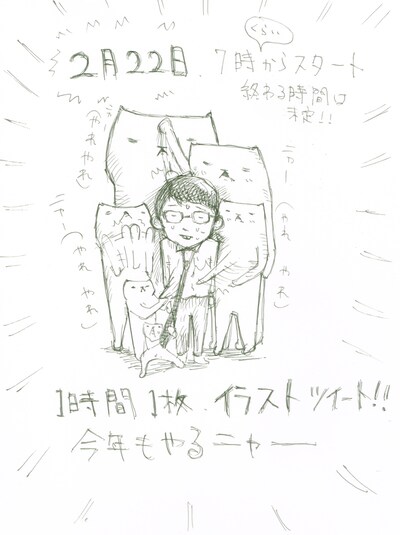 2月22日. 7時からスタート
くらい
終わる時間は
未定!!
ニャー
(やれやれ)
ニャー
(やれやれ)
(やれやれ)
1時間1枚.イラストツイート!!
今年もやるニャー